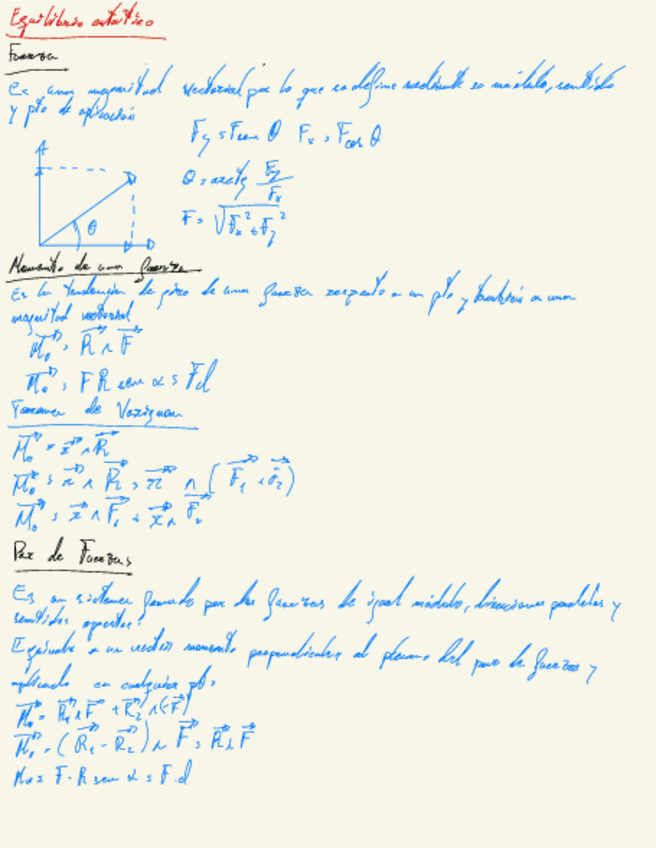 Equilibrio estático
Fuerza
Es una magnitud vectorial por lo que se define mediante su módulo, sentido
y pto de aplicación
Fy = F sen θ Fx = F cos θ
θ = arctg Fy/Fx
F = √(Fx² + Fy²)
θ
Momento de una fuerza
Es la tendencia de giro de una fuerza respecto a un pto y también es una
magnitud vectorial
M₀ = R ∧ F
M₀ = F R sen α = F d
Teorema de Varignon
M₀ = r ∧ R
M₀ = r ∧ R = r ∧ (F₁ + F₂)
M₀ = r ∧ F₁ + r ∧ F₂
Par de Fuerzas
Es un sistema formado por dos fuerzas de igual módulo, direcciones paralelas y
sentidos opuestos.
Equivale a un vector momento perpendicular al plano del par de fuerzas y
aplicado en cualquier pto
M₀ = R₁ ∧ F + R₂ ∧ (-F)
M₀ = (R₁ - R₂) ∧ F = R ∧ F
M₀ = F · R sen α = F · d